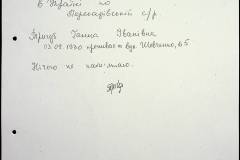 в Україні по
Пересадівській с/р.
Ганна Іванівна
03.09.1930 проживає вул. Шевченко, 65
Нічого не пам'ятаю.